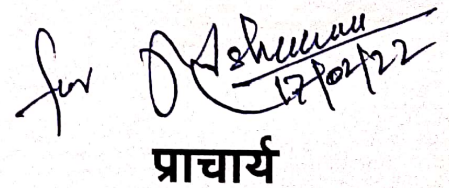 for
17/02/22
प्राचार्य